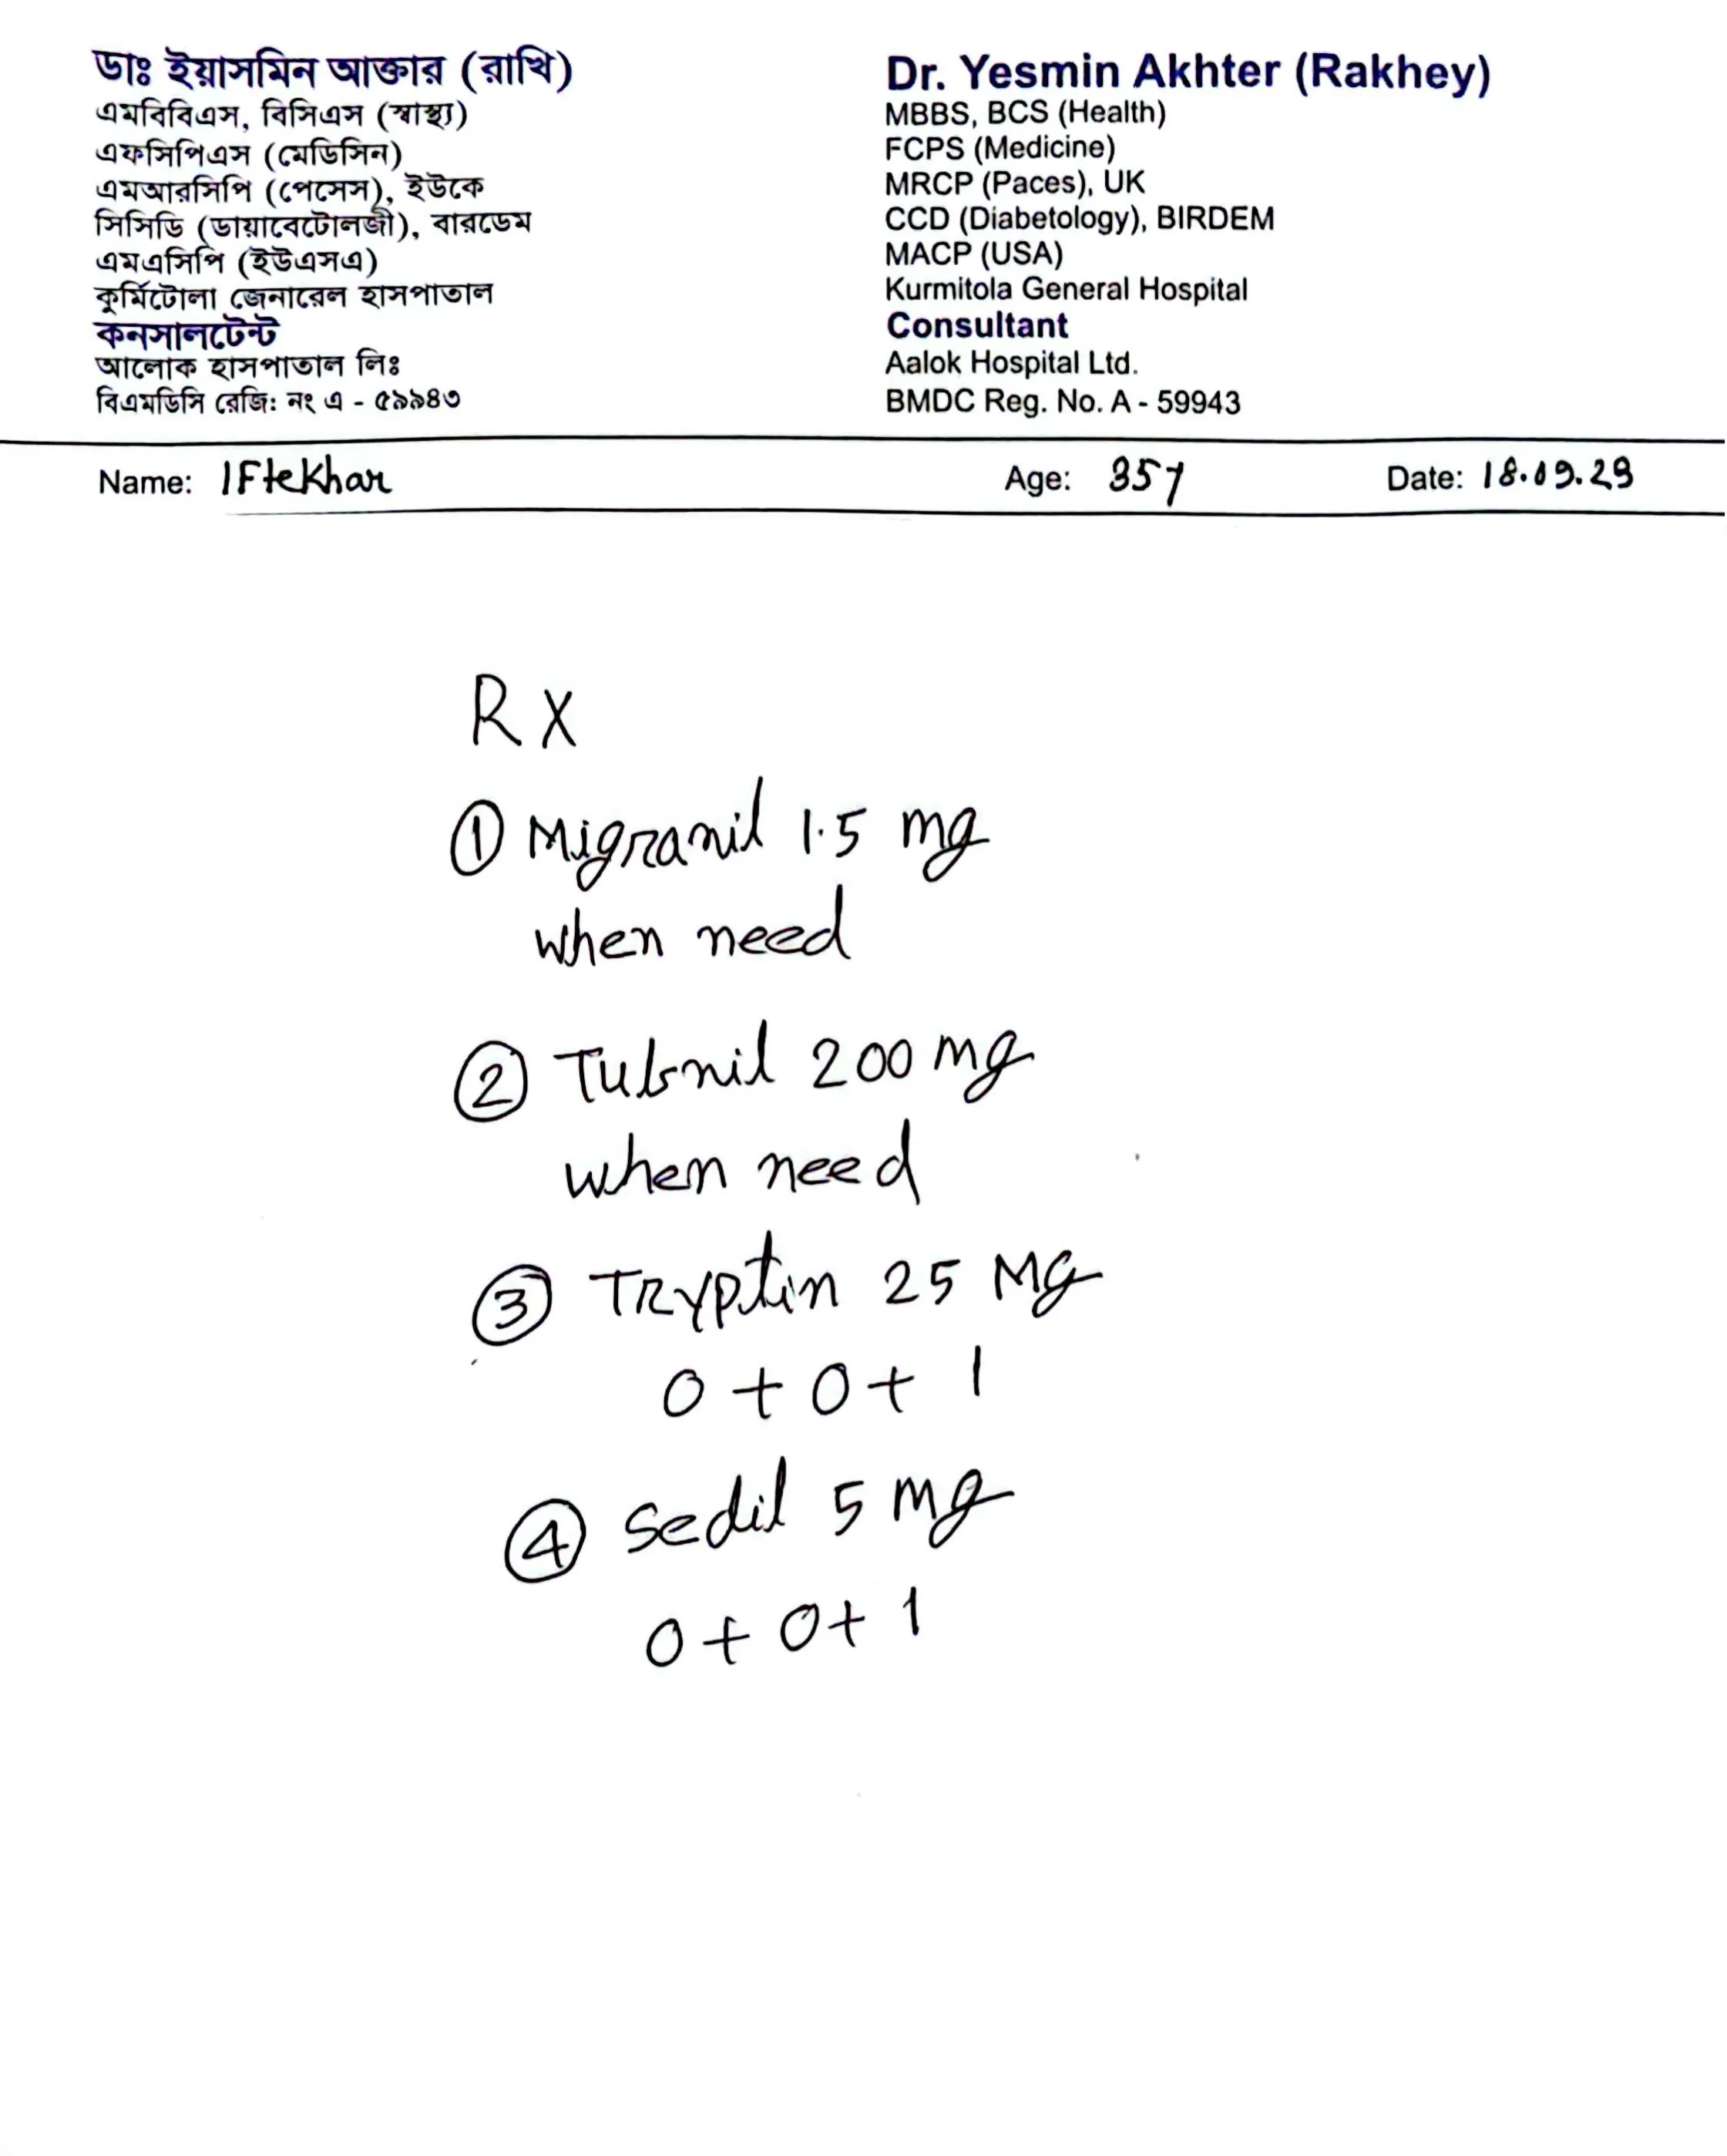 ডাঃ ইয়াসমিন আক্তার (রাখি)
এমবিবিএস, বিসিএস (স্বাস্থ্য)
এফসিপিএস (মেডিসিন)
এমআরসিপি (পেসেস), ইউকে
সিসিডি (ডায়াবেটোলজী), বারডেম
এমএসিপি (ইউএসএ)
কুর্মিটোলা জেনারেল হাসপাতাল
কনসালটেন্ট
আলোক হাসপাতাল লিঃ
বিএমডিসি রেজি: নং এ - ৫৯৯৪৩
Dr. Yesmin Akhter (Rakhey)
MBBS, BCS (Health)
FCPS (Medicine)
MRCP (Paces), UK
CCD (Diabetology), BIRDEM
MACP (USA)
Kurmitola General Hospital
Consultant
Aalok Hospital Ltd.
BMDC Reg. No. A - 59943
Name: IFtekhar Age: 35y Date: 18.09.23
RX
① Migranil 1.5 mg
when need
② Tubnil 200 mg
when need
③ TRyptin 25 Mg
0 + 0 + 1
④ Sedil 5 mg
0 + 0 + 1